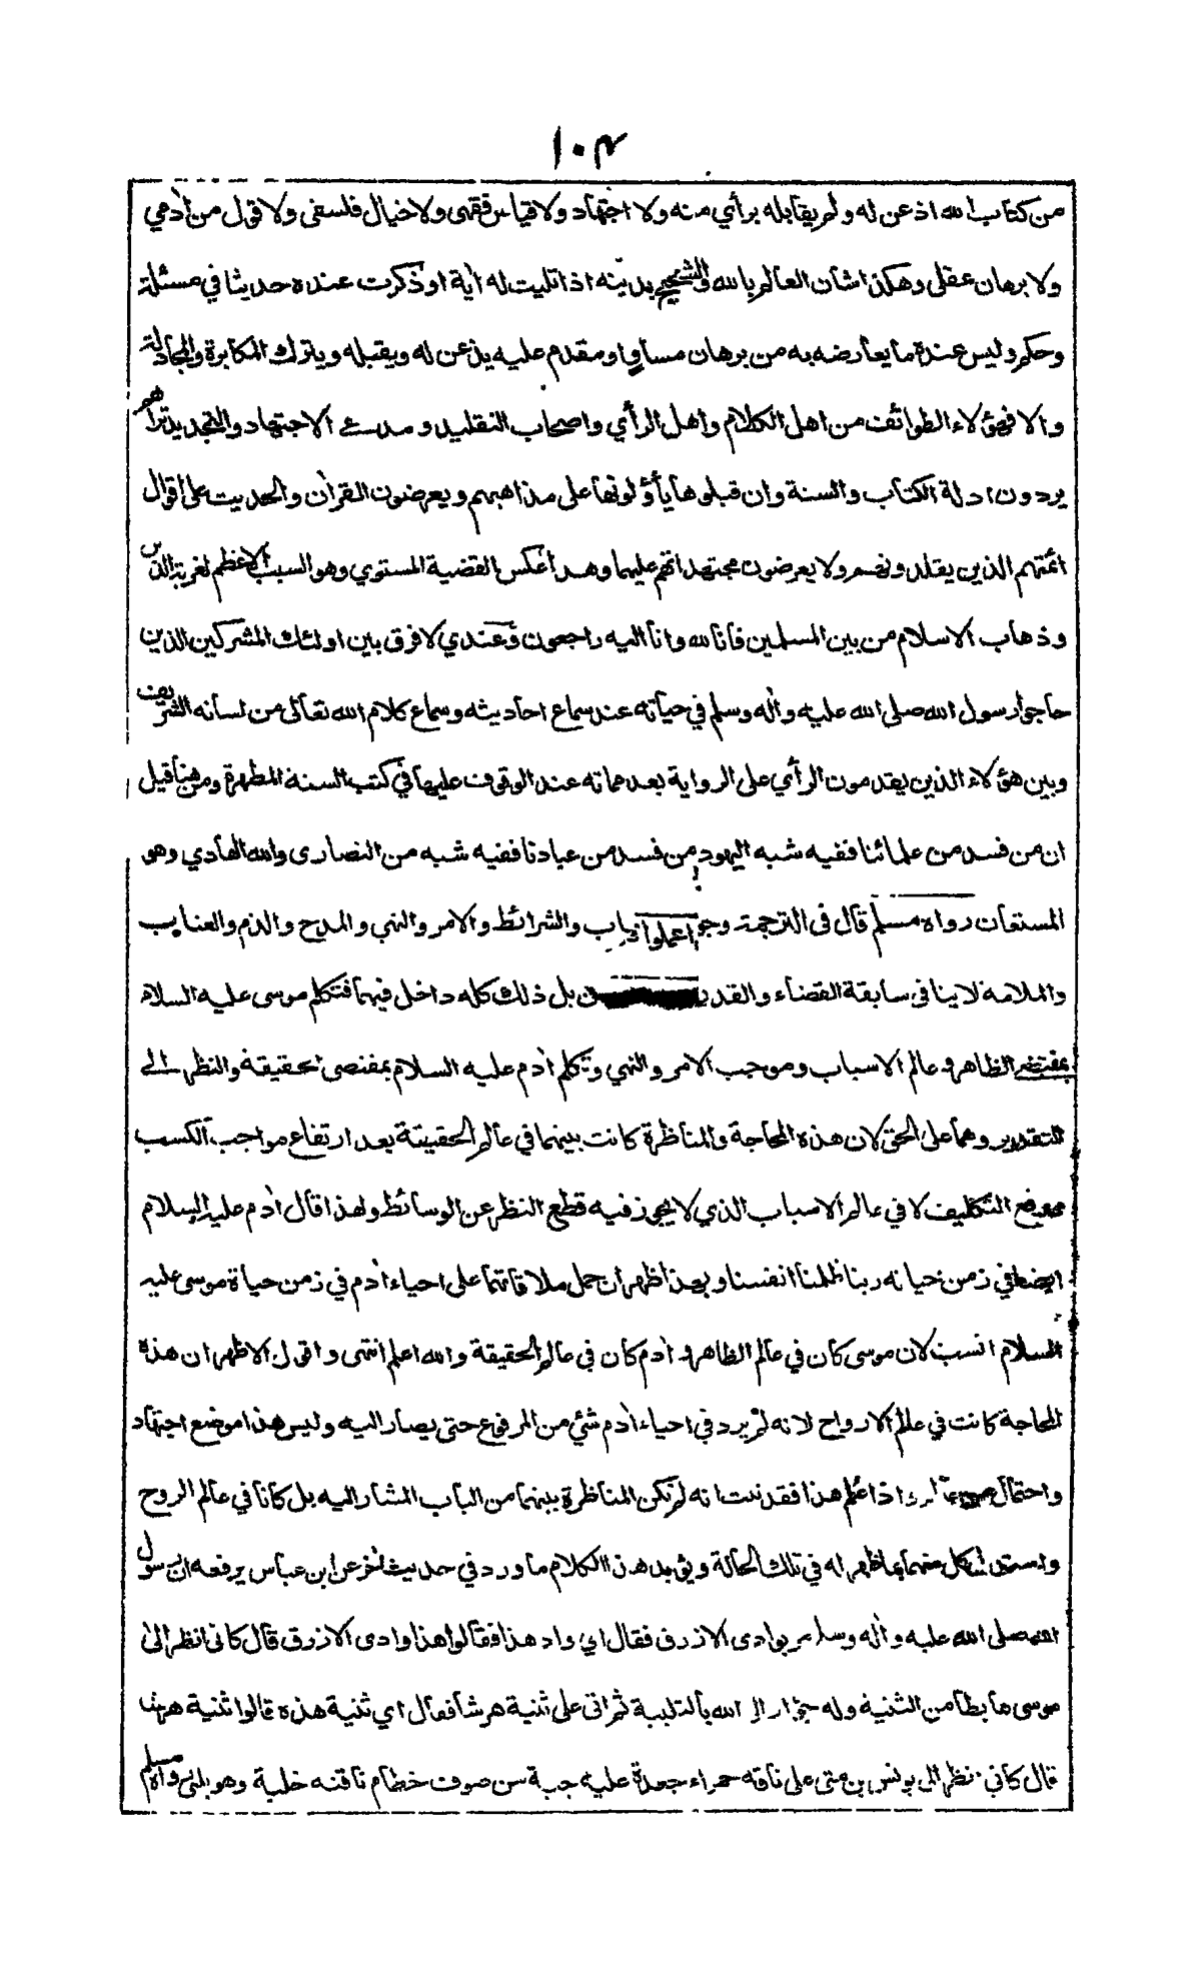 ١٠٣
من كتاب الله اذعن له ولم يقابله برأي منه ولا اجتهاد ولا قياس فقهى ولا خيال فلسفى ولا قول من أدمي
ولا برهان عقلى وهكذا شأن العالم بالله والشحيح بدينه اذا تليت له أية او ذكرت عنده حديثا في مسئلة
وحكم وليس عنده ما يعارضه به من برهان مساو او مقدم عليه يذعن له ويقبله ويترك المكابرة والمجادلة
والا فهؤلاء الطوائف من اهل الكلام واهل الرأي واصحاب التقليد ومدعى الاجتهاد والتجديد تراهم
يردون ادلة الكتاب والسنة وان قبلوها يأؤلونها على مذاهبهم ويعرضون القرأن والحديث على اقوال
ائمتهم الذين يقلدونهم ولا يعرضون مجتهداتهم عليها وهذا عكس القضية المستوي وهو السبب الاعظم لغربة الدين
وذهاب الاسلام من بين المسلمين فانا لله وانا اليه راجعون وعندي لا فرق بين اولئك المشركين الذين
حاجوا رسول الله صلى الله عليه وأله وسلم في حياته عند سماع احاديثه وسماع كلام الله تعالى من لسانه الشريف
وبين هؤلاء الذين يقدمون الرأي على الرواية بعد مماته عند الوقوف عليها في كتب السنة المطهرة ومن هنا قيل
ان من فسد من علمائنا ففيه شبه اليهود ومن فسد من عبادنا ففيه شبه من النصارى والله الهادي وهو
المستعان رواه مسلم قال فى الترجمة وجو اعملوا باب والشرائط والامر والنهي والمدح والذم والعتاب
والملامة لا ينافى سابقة القضاء والقدر بل ذلك كله داخل فيهما فتكلم موسى عليه السلام
بمقتضى الظاهر وعالم الاسباب وموجب الامر والنهي وتكلم أدم عليه السلام بمقتضى الحقيقة والنظر الى
التقدير وهما على الحق لان هذه المحاجة والمناظرة كانت بينهما في عالم الحقيقة بعد ارتفاع مواجب الكسب
ورفع التكليف لا في عالم الاسباب الذي لا يجوز فيه قطع النظر عن الوسائط ولهذا قال أدم عليه السلام
ايضا في زمن حياته ربنا ظلمنا انفسنا وبهذا ظهر ان حمل ملاقاتهما على احياء أدم في زمن حياة موسى عليه
السلام انسب لان موسى كان في عالم الظاهر وأدم كان في عالم الحقيقة والله اعلم انتهى واقول الاظهر ان هذه
المحاجة كانت في عالم الارواح لانه لم يرد في احياء أدم شئ من المرفوع حتى يصار اليه وليس هذا موضع اجتهاد
واحتمال اذا علم هذا فقد ثبت انه لم تكن المناظرة بينهما من الباب المشار اليه بل كانا في عالم الروح
واستدل كل منهما بما ظهر له في تلك الحالة ويؤيد هذا الكلام ما ورد في حديث أخر عن ابن عباس يرفعه ان رسول
الله صلى الله عليه وأله وسلم مر بوادى الازرق فقال اي واد هذا فقالوا هذا وادى الازرق قال كانى انظر الى
موسى هابطا من الثنية وله جؤار الى الله بالتلبية ثم اتى على ثنية هرشا فقال اي ثنية هذه قالوا ثنية هرشا
قال كاني انظر الى يونس بن متى على ناقة حمراء جعدة عليه جبة من صوف خطام ناقته خلبة وهو يلبى رواه مسلم